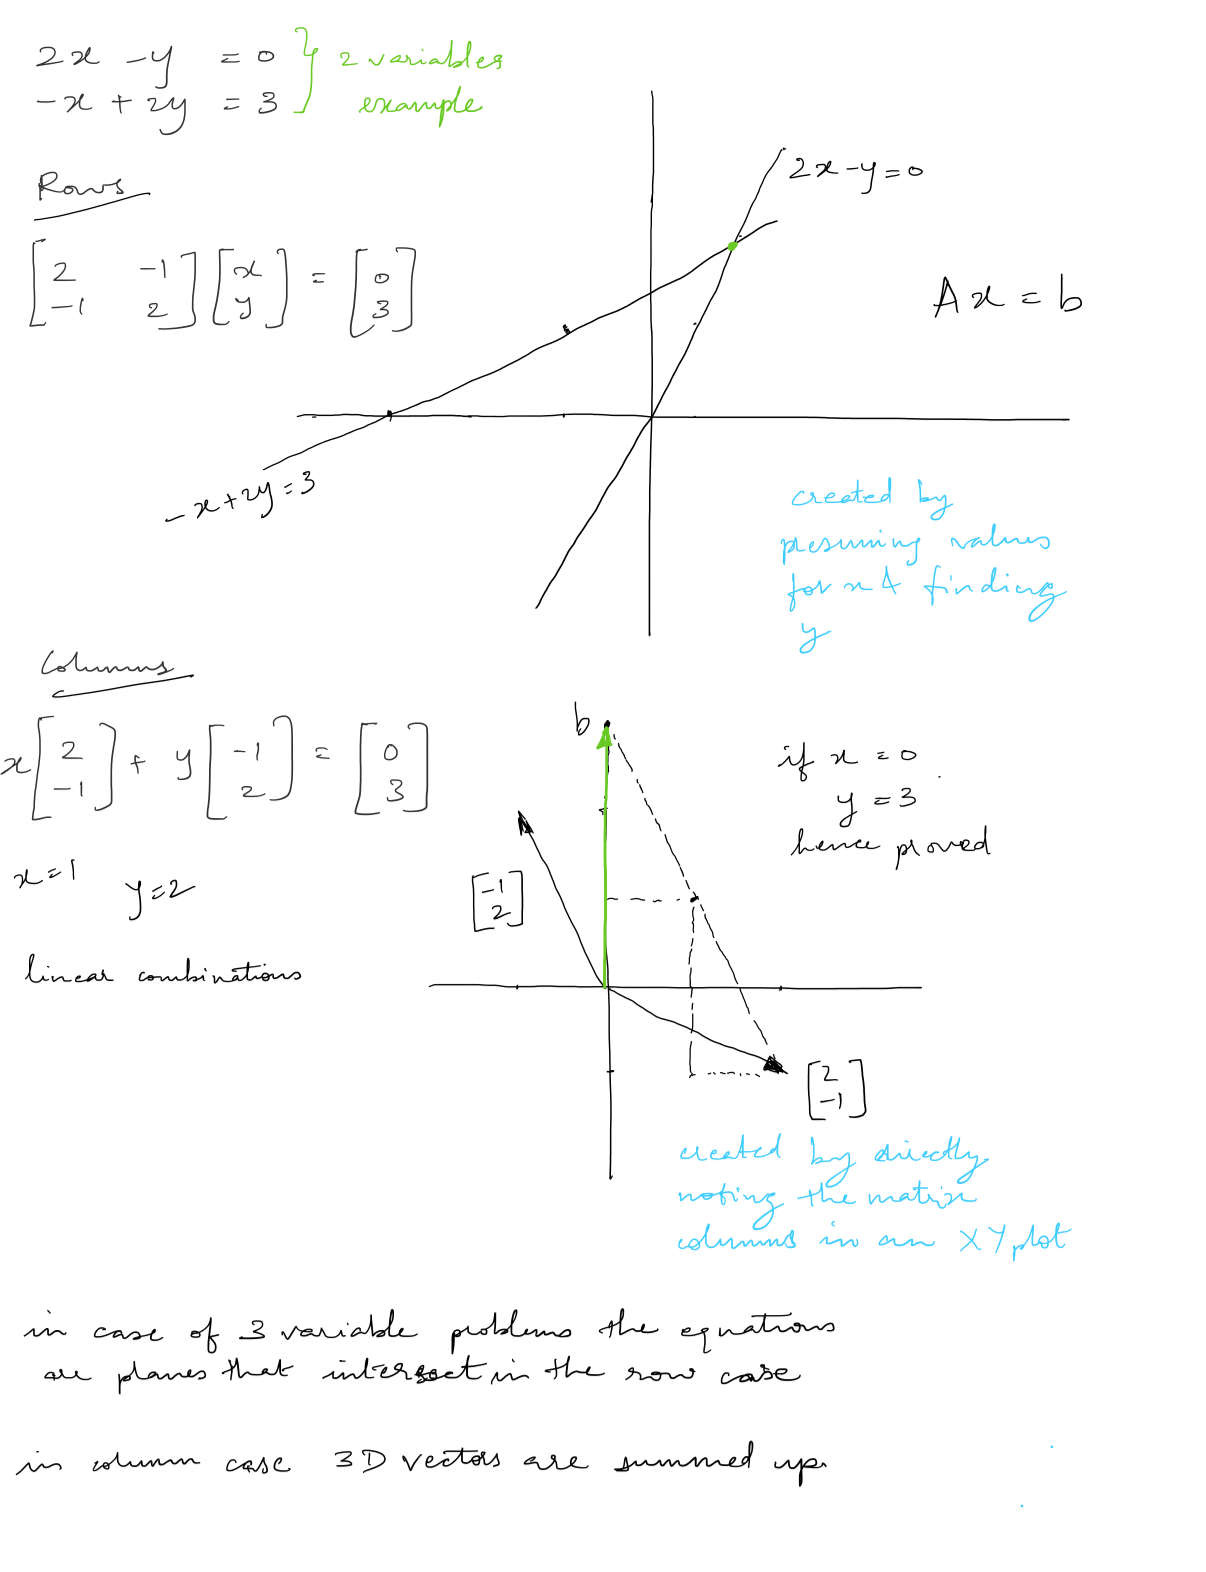 2x - y = 0 } 2 variables
-x + 2y = 3 example
Rows
[2 -1; -1 2] [x; y] = [0; 3]
2x-y=0
Ax = b
-x+2y=3
created by
presuming values
for x & finding
y
Columns
x[2; -1] + y[-1; 2] = [0; 3]
x=1
y=2
linear combinations
b
[-1; 2]
[2; -1]
if x = 0
y = 3
hence proved
created by directly
noting the matrix
columns in an XY plot
in case of 3 variable problems the equations
are planes that intersect in the row case
in column case 3D vectors are summed up.